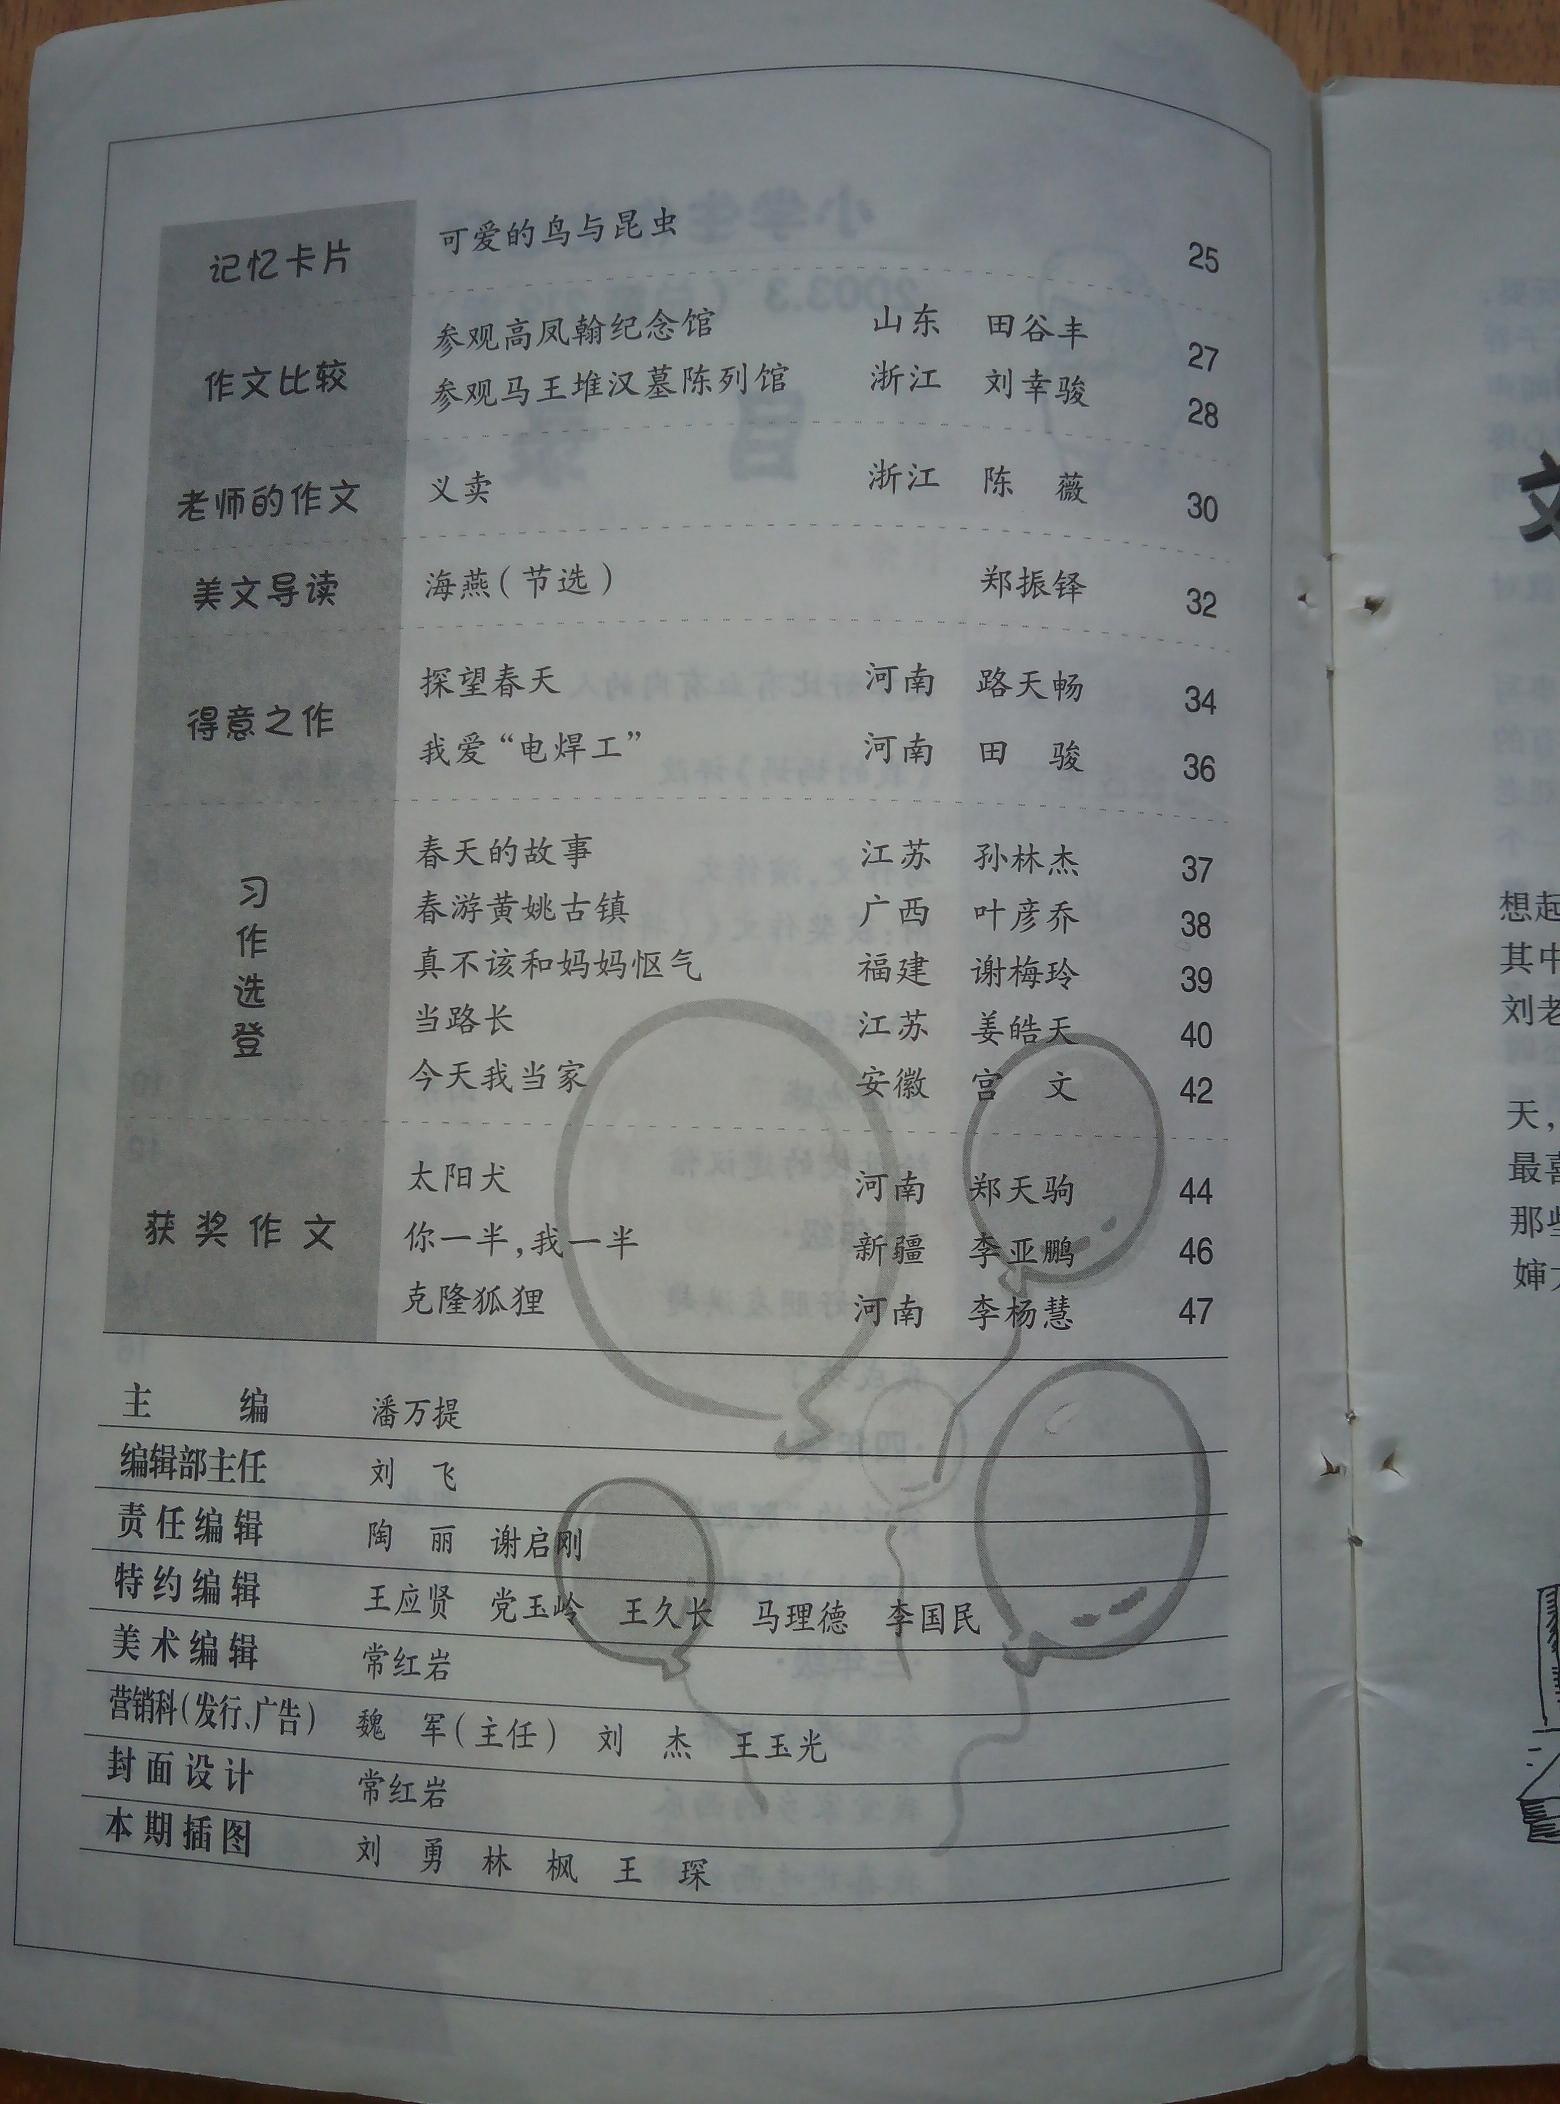 记忆卡片 可爱的鸟与昆虫 25
作文比较 参观高凤翰纪念馆 山东 田谷丰 27
参观马王堆汉墓陈列馆 浙江 刘幸骏 28
老师的作文 义卖 浙江 陈 薇 30
美文导读 海燕(节选) 郑振铎 32
得意之作 探望春天 河南 路天畅 34
我爱“电焊工” 河南 田 骏 36
习作选登 春天的故事 江苏 孙林杰 37
春游黄姚古镇 广西 叶彦乔 38
真不该和妈妈怄气 福建 谢梅玲 39
当路长 江苏 姜皓天 40
今天我当家 安徽 宫 文 42
获奖作文 太阳犬 河南 郑天驹 44
你一半,我一半 新疆 李亚鹏 46
克隆狐狸 河南 李杨慧 47
主编 潘万提
编辑部主任 刘 飞
责任编辑 陶 丽 谢启刚
特约编辑 王应贤 党玉岭 王久长 马理德 李国民
美术编辑 常红岩
营销科(发行、广告) 魏 军(主任) 刘 杰 王玉光
封面设计 常红岩
本期插图 刘 勇 林 枫 王 琛
想起
其中
刘老
天,
最喜
那些
婶